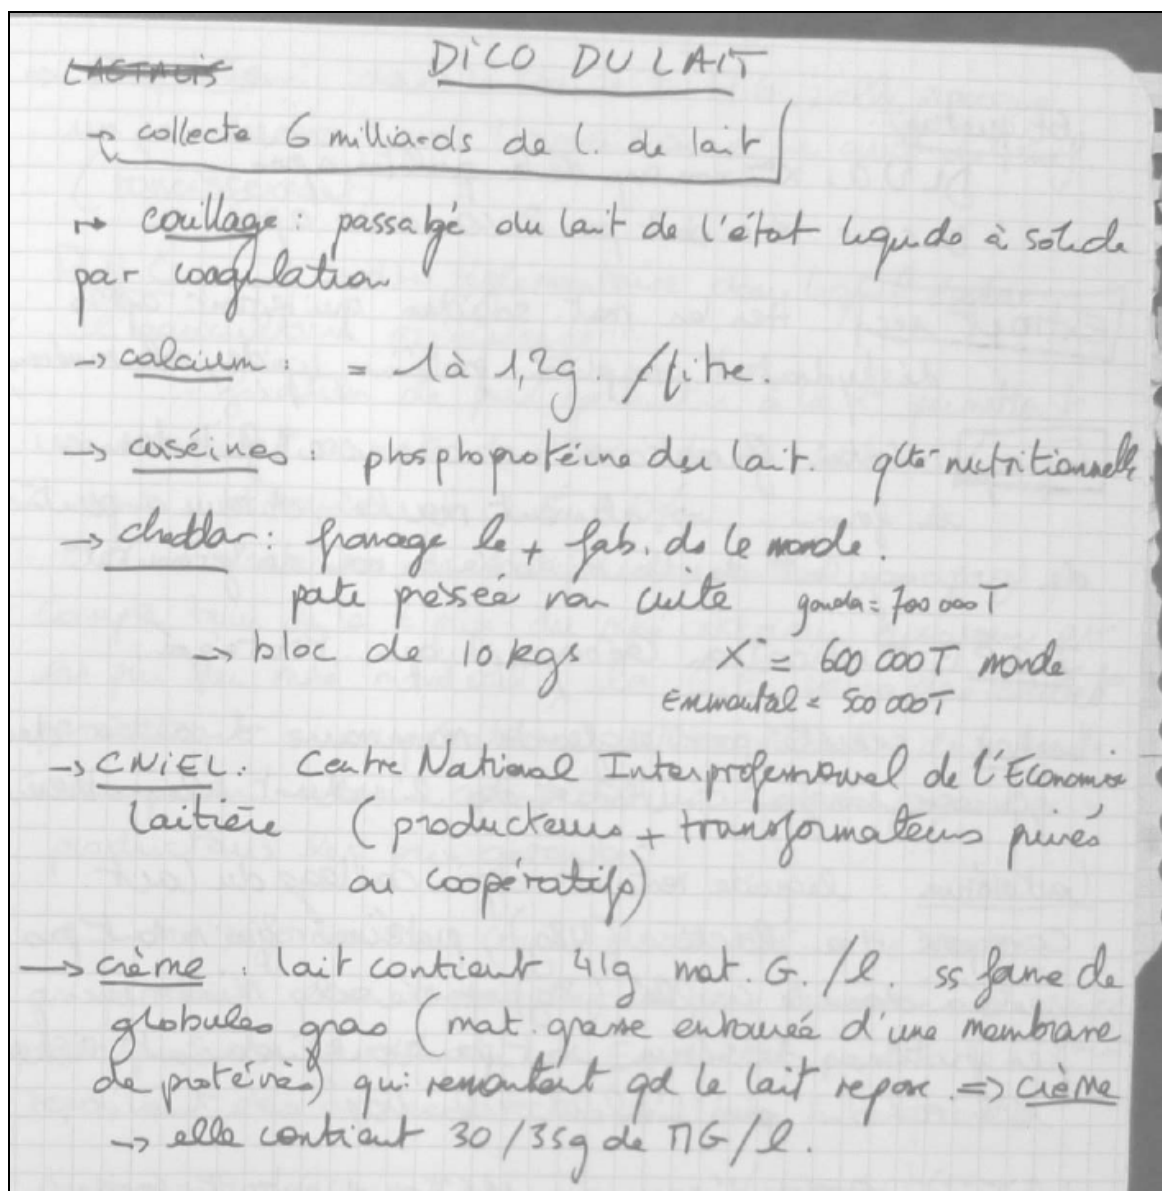 LACTALIS
DICO DU LAIT
→ collecte 6 milliards de l. de lait
→ caillage : passage du lait de l'état liquide à solide
par coagulation
→ calcium : = 1 à 1,2g. / litre.
→ caséines : phosphoprotéine du lait. qlté nutritionnelle
→ cheddar : fromage le + fab. ds le monde.
pate pressée non cuite gouda = 700 000T
→ bloc de 10 kgs X = 600 000T monde
Emmental = 500 000T
→ CNIEL : Centre National Interprofessionnel de l'Economie
laitière (producteurs + transformateurs privés
ou coopératifs)
→ crème : lait contient 41g mat. G. /l. ss forme de
globules gras (mat. grasse entourée d'une membrane
de protéines) qui remontent qd le lait repose. => crème
→ elle contient 30/35g de MG/l.